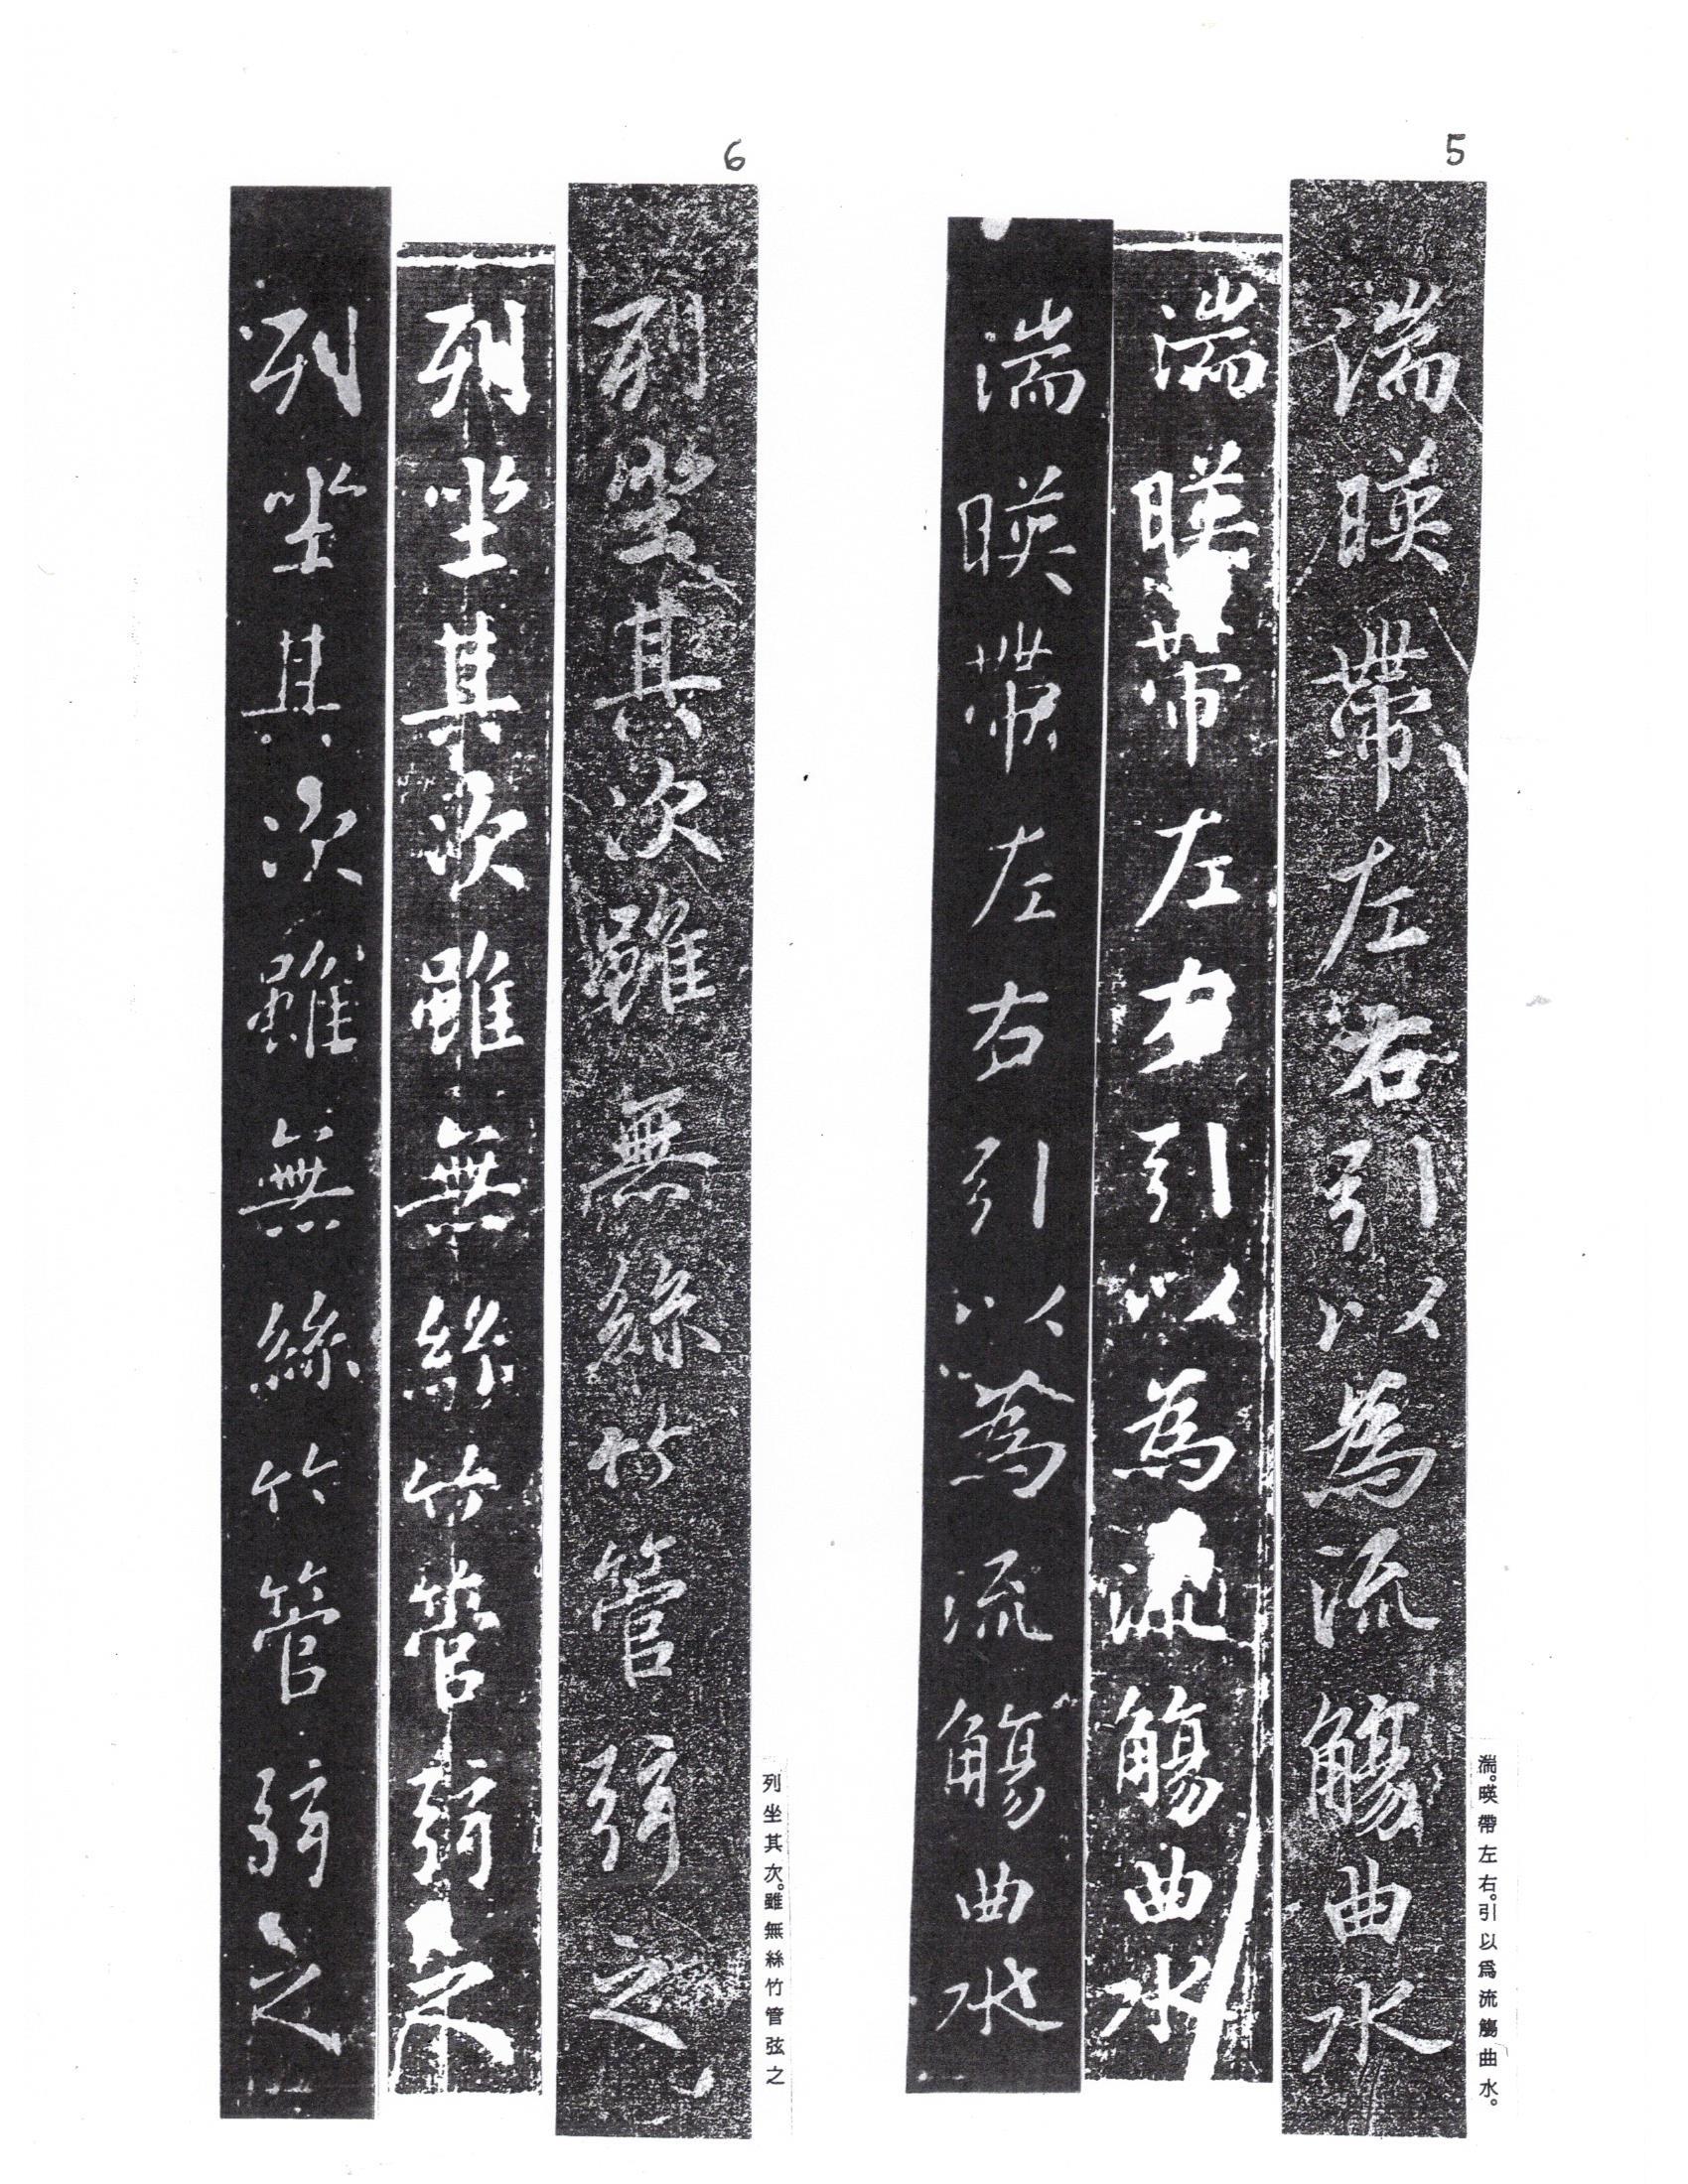 5
湍暎帶左右引以為流觴曲水
湍暎帶左右引以為流觴曲水
湍暎帶左右引以為流觴曲水
湍。暎帶左右。引以爲流觴曲水。
6
列坐其次雖無絲竹管弦之
列坐其次雖無絲竹管弦之
列坐其次雖無絲竹管弦之
列坐其次。雖無絲竹管弦之